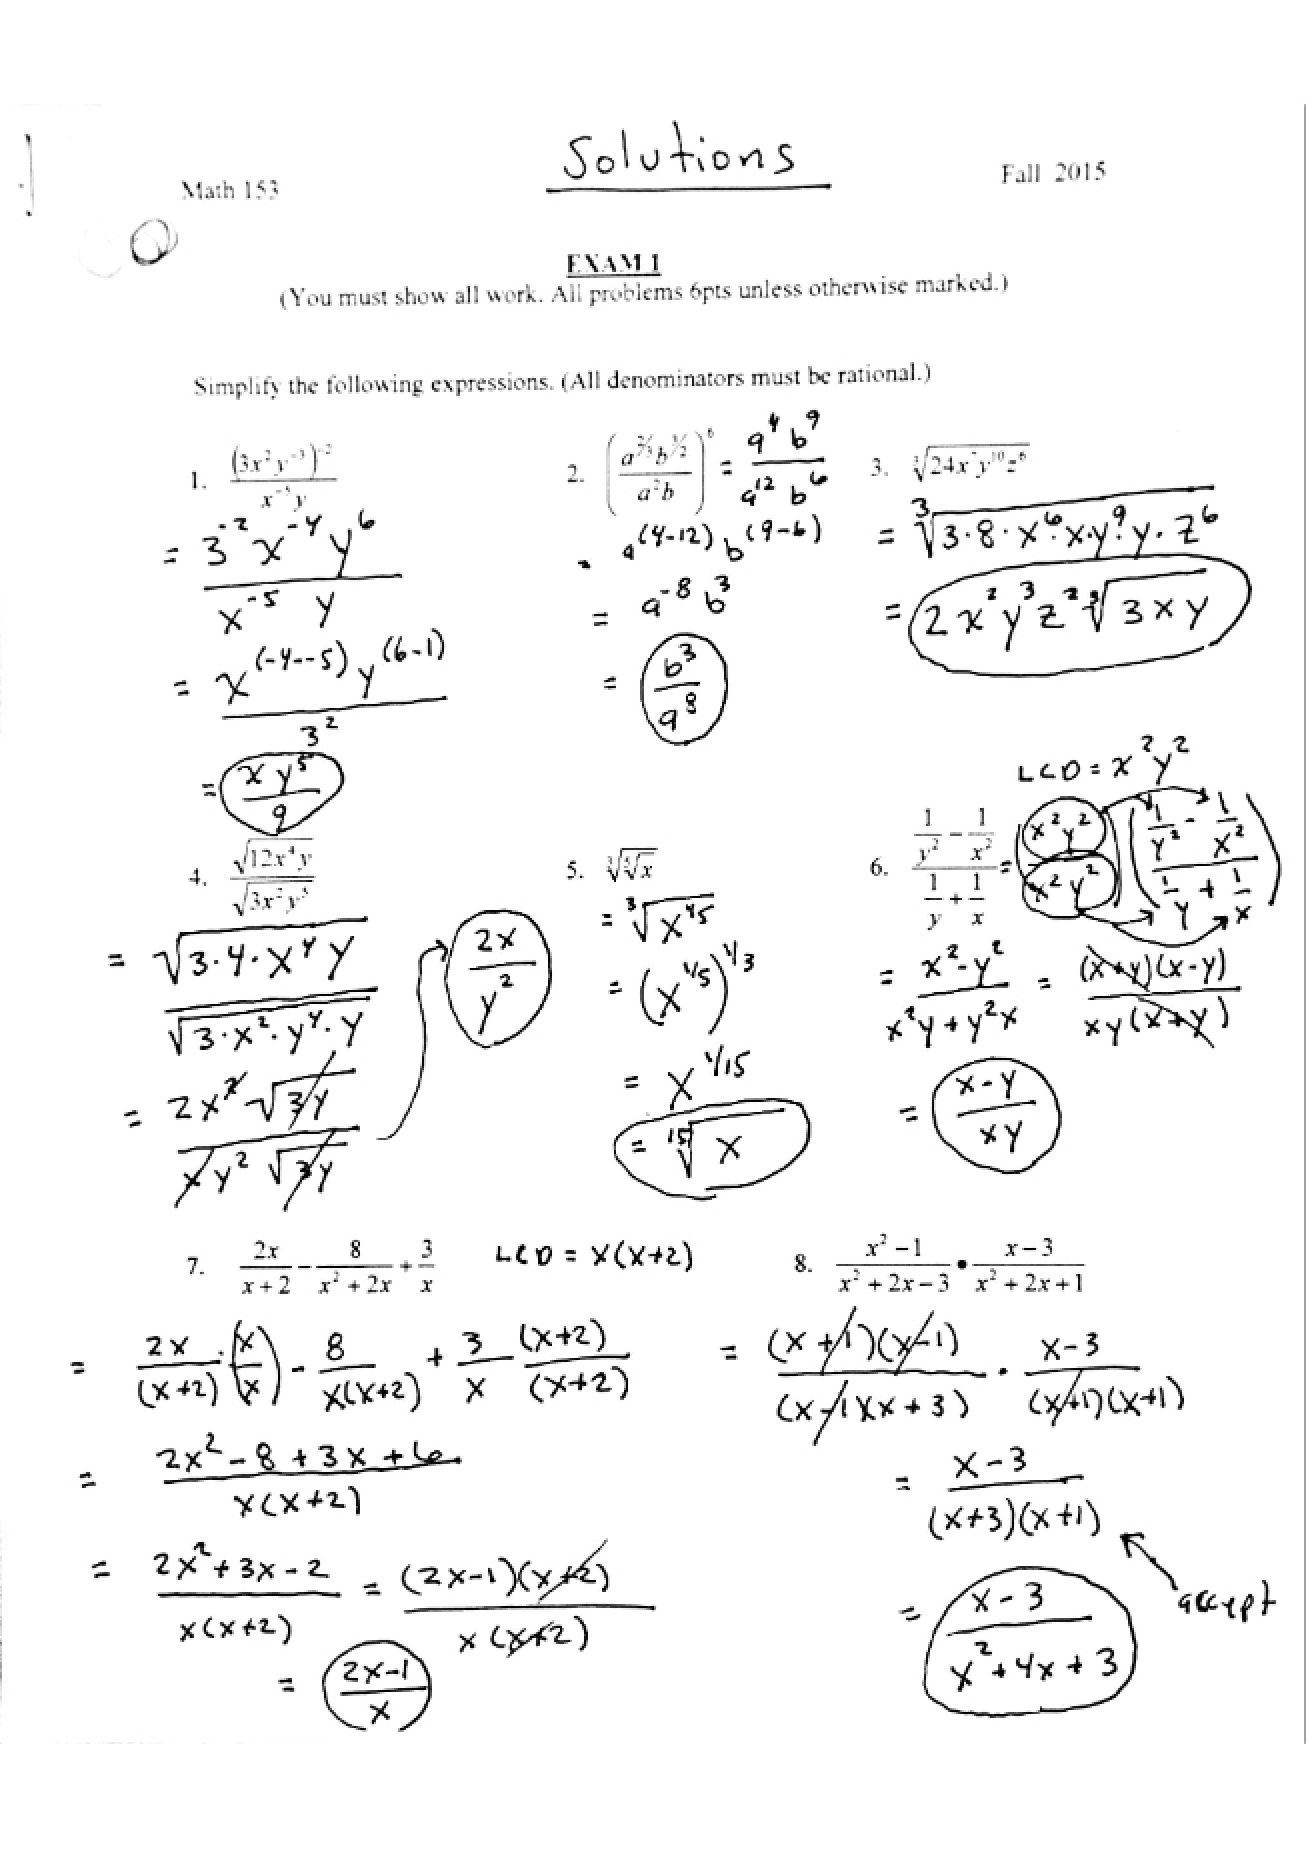 Solutions
Math 153
Fall 2015
EXAM 1
(You must show all work. All problems 6pts unless otherwise marked.)
Simplify the following expressions. (All denominators must be rational.)
1. (3x²y⁻³)⁻² / x⁻⁵y
= 3⁻²x⁻⁴y⁶ / x⁻⁵ y
= x^(-4--5) y^(6-1) / 3²
= xy⁵ / 9
2. (a^(2/3)b^(3/2) / a²b)⁶ = a⁴b⁹ / a¹²b⁶
= a^(4-12) b^(9-6)
= a⁻⁸b³
= b³ / a⁸
3. ∛(24x⁷y¹⁰z⁶)
= ∛(3·8·x⁶·x·y⁹·y·z⁶)
= 2x²y³z² ∛(3xy)
4. √(12x⁴y) / √(3x²y⁵)
= √(3·4·x⁴y) / √(3·x²·y⁴·y)
= 2x²√(3y) / xy²√(3y)
2x / y²
5. ∛(⁵√x)
= ∛(x^(1/5))
= (x^(1/5))^(1/3)
= x^(1/15)
= ¹⁵√x
LCD = x²y²
6. (1/y² - 1/x²) / (1/y + 1/x) = (x²y² / x²y²)((1/y² - 1/x²) / (1/y + 1/x))
= (x²-y²) / (x²y+y²x) = (x+y)(x-y) / xy(x+y)
= (x-y) / xy
7. 2x/(x+2) - 8/(x²+2x) + 3/x LCD = x(x+2)
= 2x/(x+2) · (x/x) - 8/x(x+2) + 3/x (x+2)/(x+2)
= (2x²-8+3x+6) / x(x+2)
= (2x²+3x-2) / x(x+2) = (2x-1)(x+2) / x(x+2)
= (2x-1) / x
8. (x²-1)/(x²+2x-3) • (x-3)/(x²+2x+1)
= (x+1)(x-1) / (x-1)(x+3) · (x-3) / (x+1)(x+1)
= (x-3) / (x+3)(x+1)
accept
= (x-3) / (x²+4x+3)